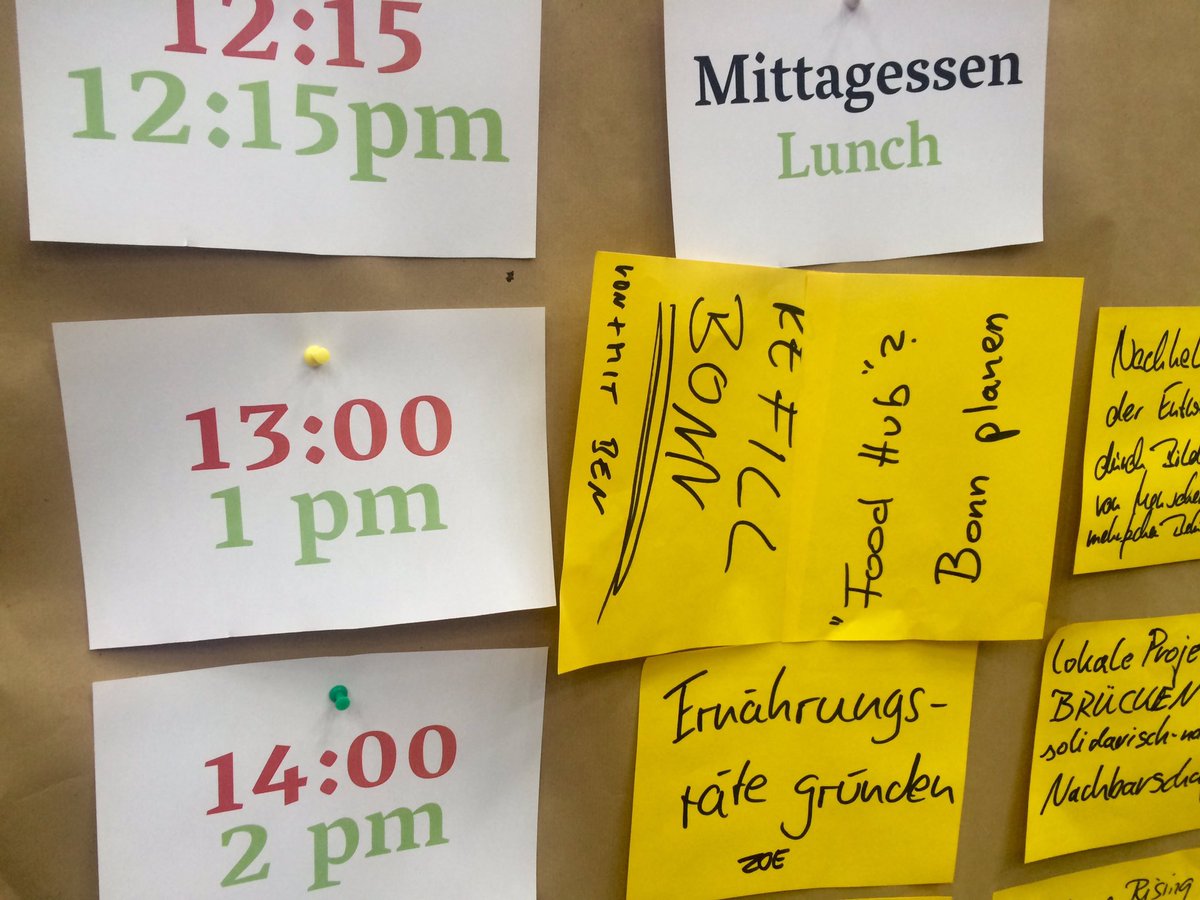 12:15
12:15pm
Mittagessen
Lunch
13:00
1 pm
VON + MIT BEN
BONN
"Food Hub"?
Bonn planen
Nachhal
der Entw
durch Bild
von Mensche
14:00
2 pm
Ernährungs-
räte gründen
ZOE
lokale Proje
BRÜCKEN
solidarisch-na
Nachbarscha
Rising